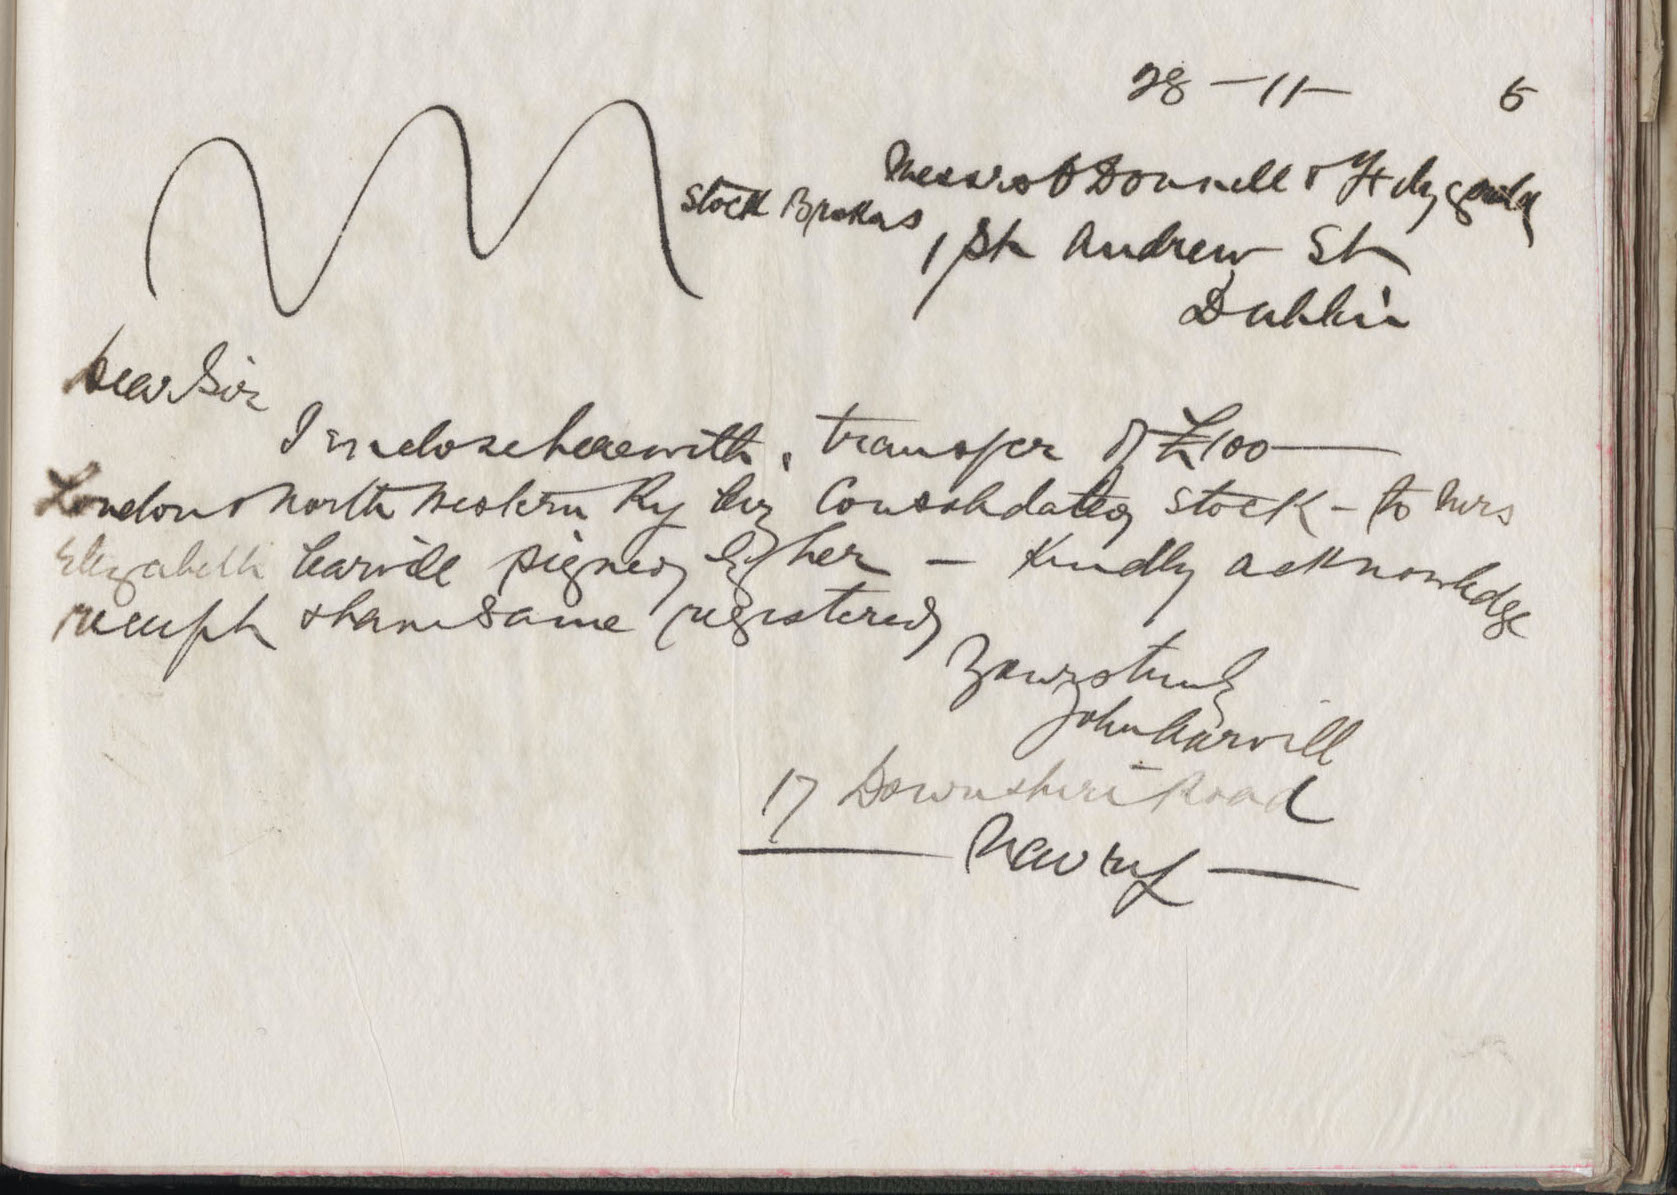 28 - 11 - 5
Messrs O Donnell & Fitzgerald
Stock Brokers
1 St Andrew St
Dublin
Dear Sir
I enclose herewith, transfer of £100 -
London & North Western Ry Coy Consolidated Stock - to Mrs
Elizabeth Carvill signed by her - Kindly acknowledge
receipt & have same registered
Yours truly
John Carvill
17 Downshire Road
Newry